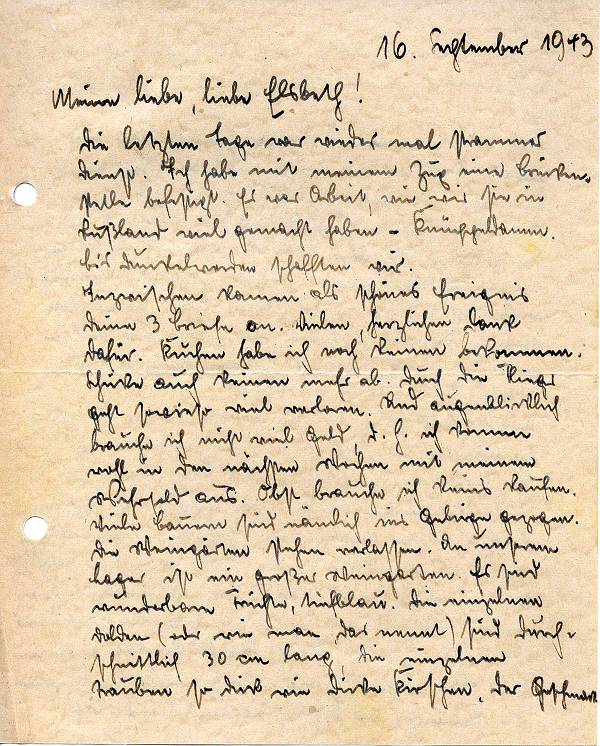 16. September 1943
Meine liebe, liebe Elsbeth!
Die letzten Tage war wieder mal strammer
Dienst. Ich habe mit meinem Zug eine Brücken-
stelle befestigt. Es war Arbeit, wie wir sie in
Rußland viel gemacht haben – Knüppeldamm.
Bis Dunkelwerden schafften wir.
Inzwischen kamen als schönes Ereignis
Deine 3 Briefe an. Vielen, herzlichen Dank
dafür. Kuchen habe ich noch keinen bekommen.
Schicke auch keinen mehr ab. Durch die
geht sowieso viel verloren. Und augenblicklich
brauche ich nicht viel Geld, d. h. ich komme
wohl in den nächsten Wochen mit meinem
Wehrsold aus. Obst brauche ich keins kaufen.
Viele Bauern sind nämlich ins Gebirge gezogen.
Die Weingärten stehen verlassen. An unserem
Lager ist ein großer Weingarten. Es sind
wunderbare Früchte, tiefblau. Die einzelnen
Dolden (oder wie man das nennt) sind durch-
schnittlich 30 cm lang, die einzelnen
Trauben so dick wie dicke Kirschen, der Geschmack